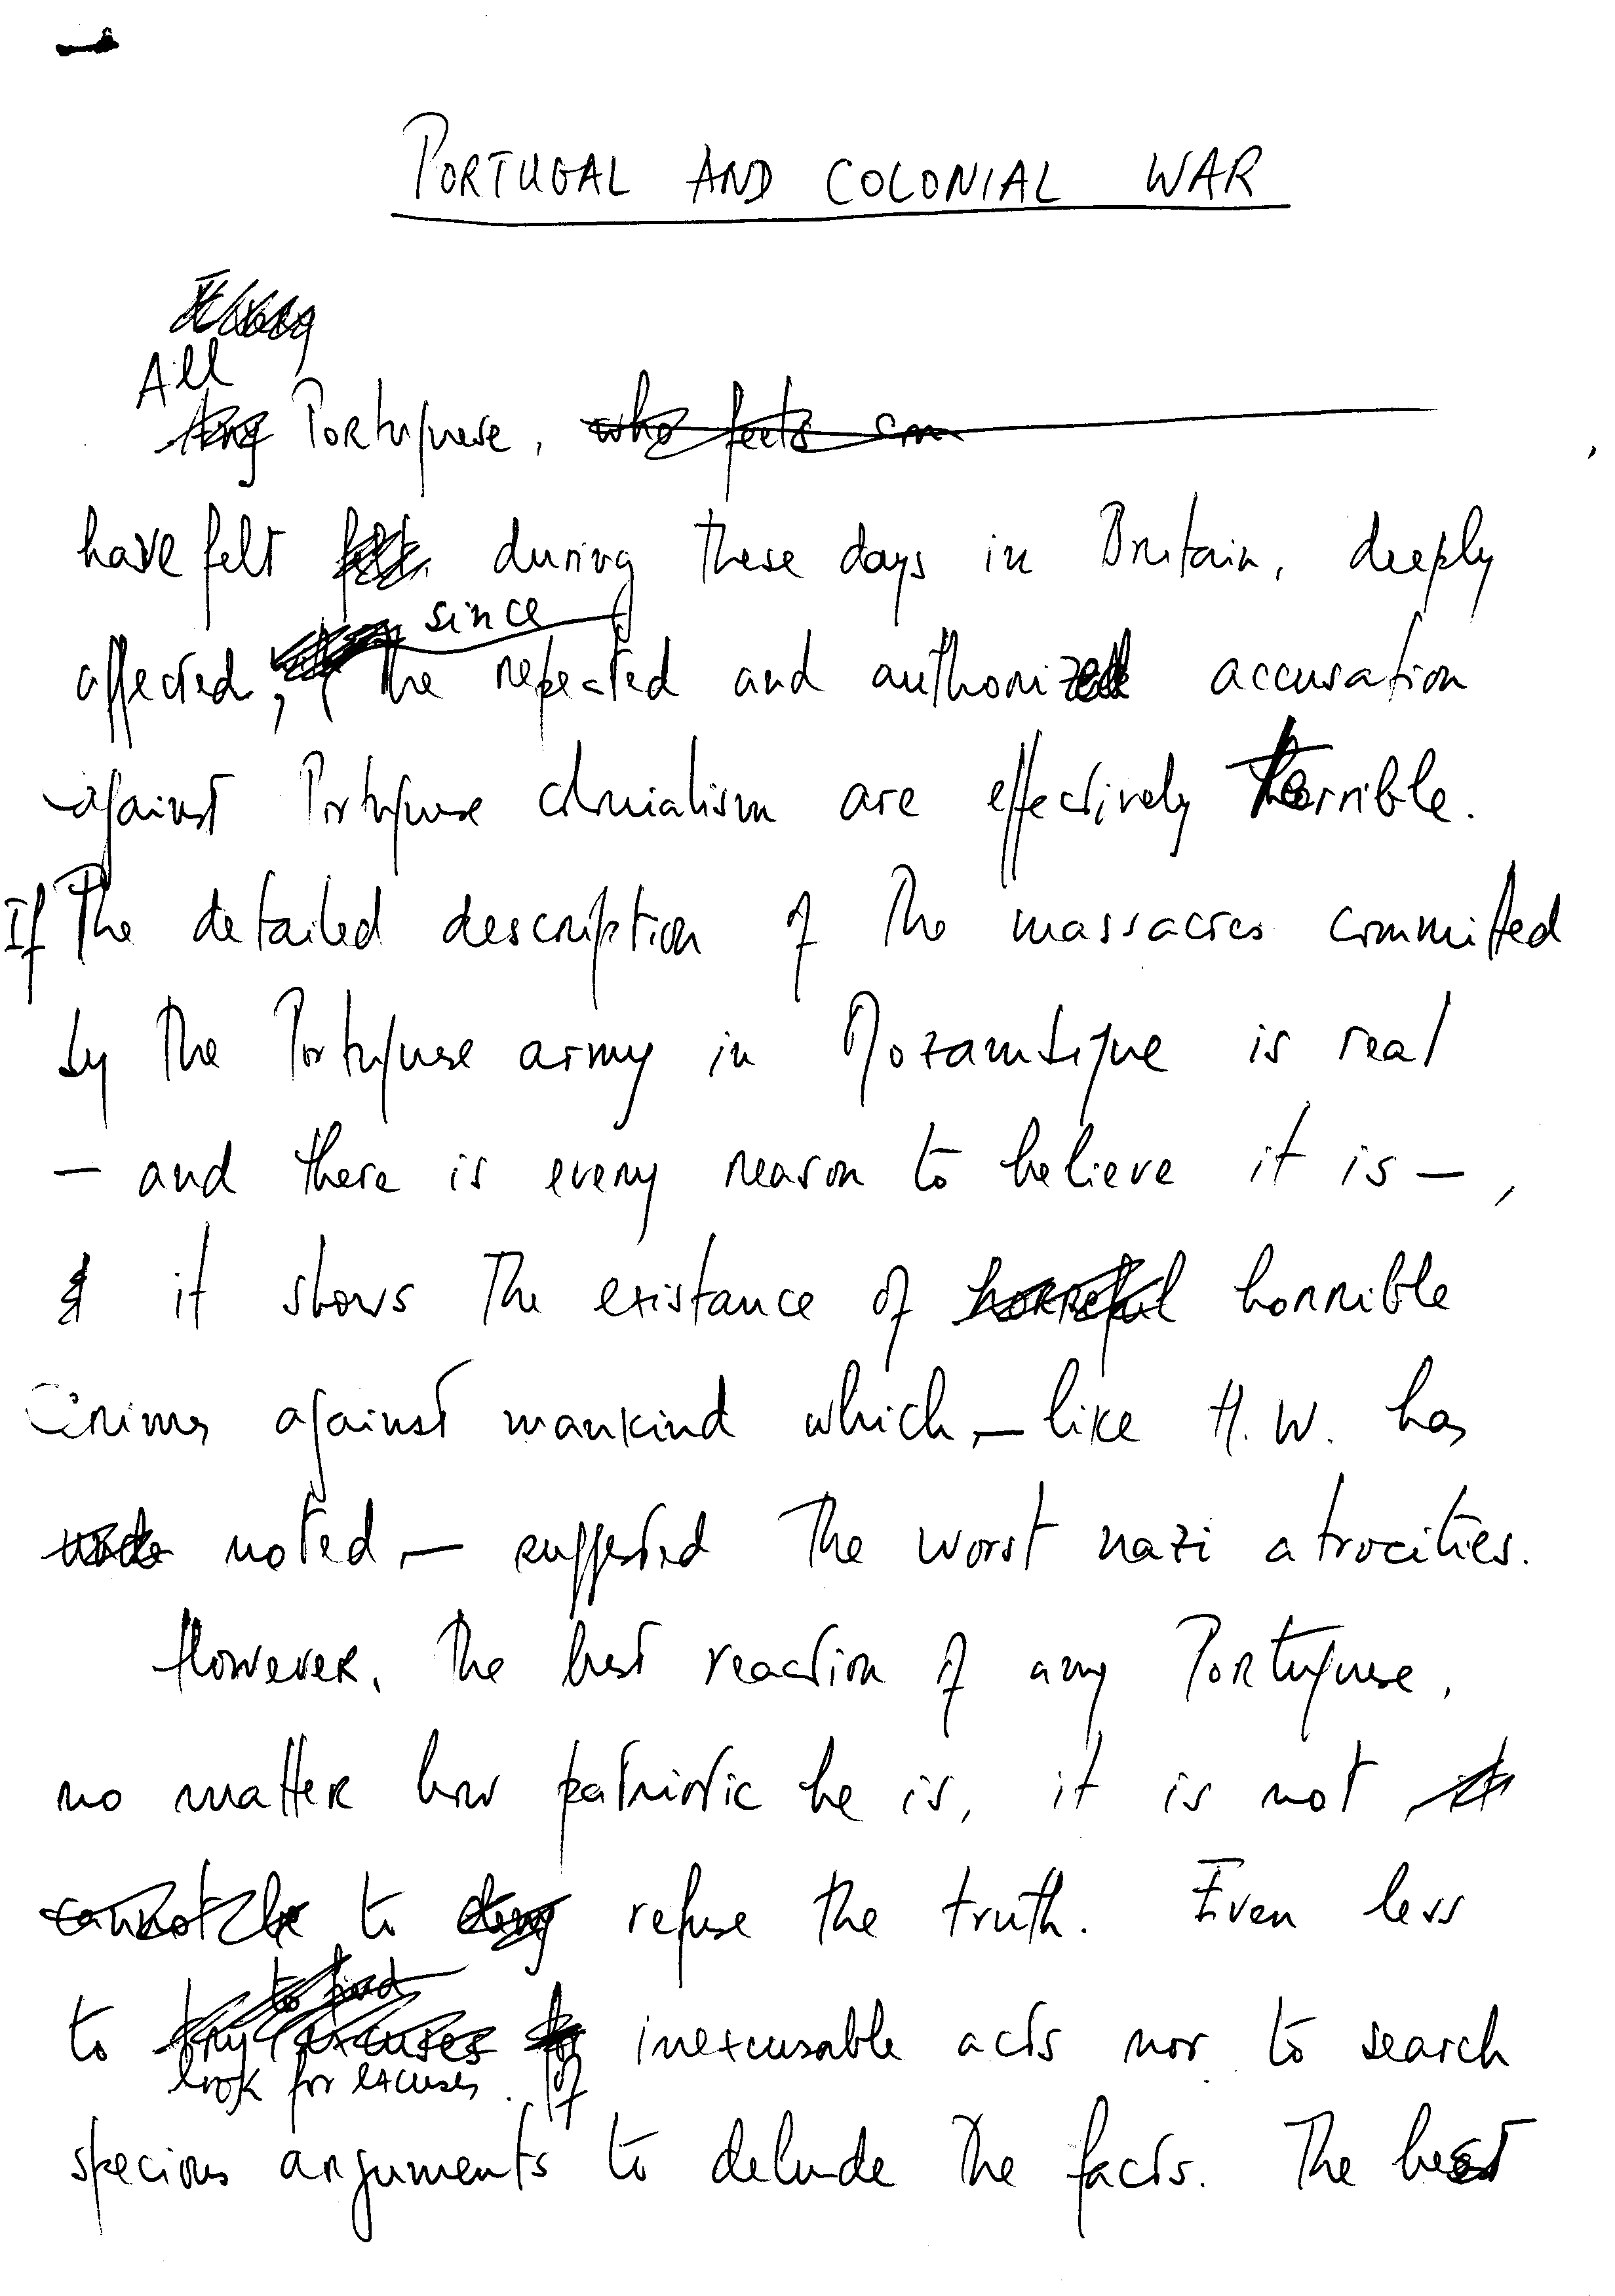 PORTUGAL AND COLONIAL WAR
All
Any Portuguese, who feels com ,
have felt felt during these days in Britain, deeply
since
affected, the repeated and authorized accusation
against Portuguese colonialism are effectively terrible.
If The detailed description of the massacres committed
by the Portuguese army in Mozambique is real
— and there is every reason to believe it is —,
it shows the existance of horreful horrible
Crimes against mankind which, — like H. W. has
note noted, — suggested the worst nazi atrocities.
However, the best reaction of any Portuguese,
no matter how patriotic he is, it is not it
cannot be to deny refuse the truth. Even less
to find
to try excuses for inexcusable acts nor to search
look for excuses of
specious arguments to delude the facts. The best